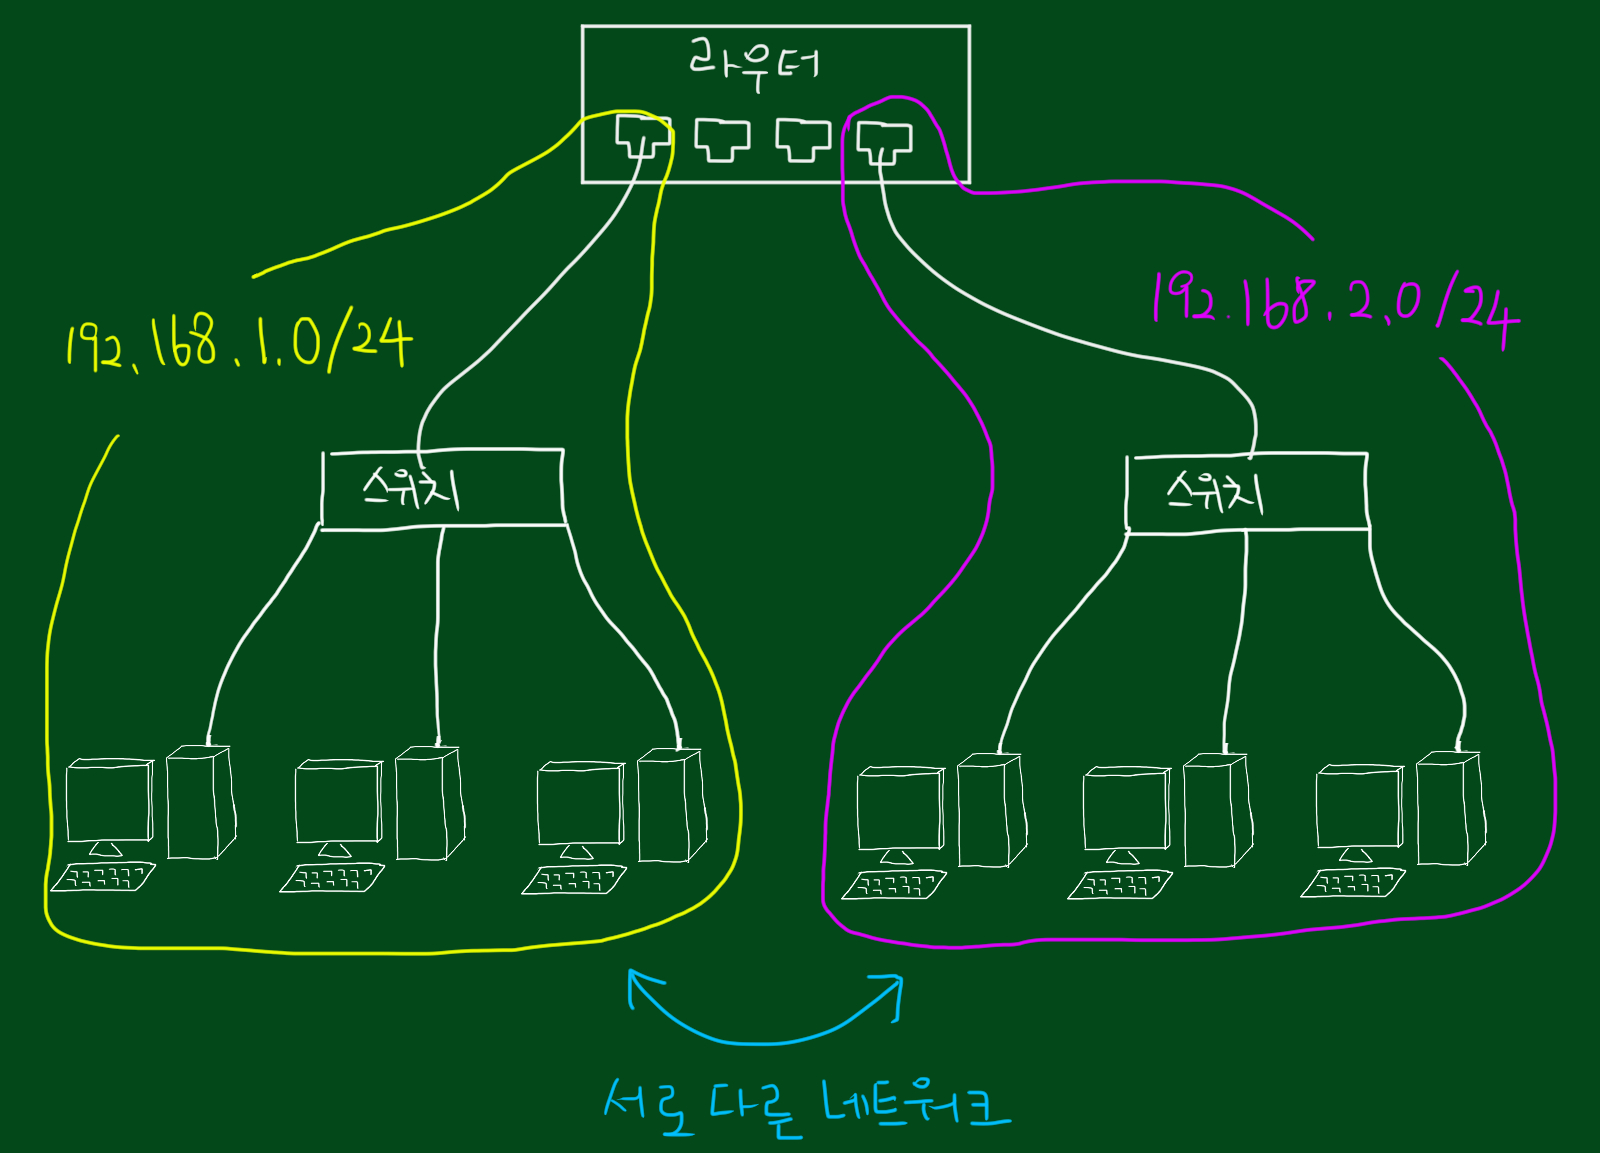 라우터
192.168.1.0/24
192.168.2.0/24
스위치
스위치
서로 다른 네트워크